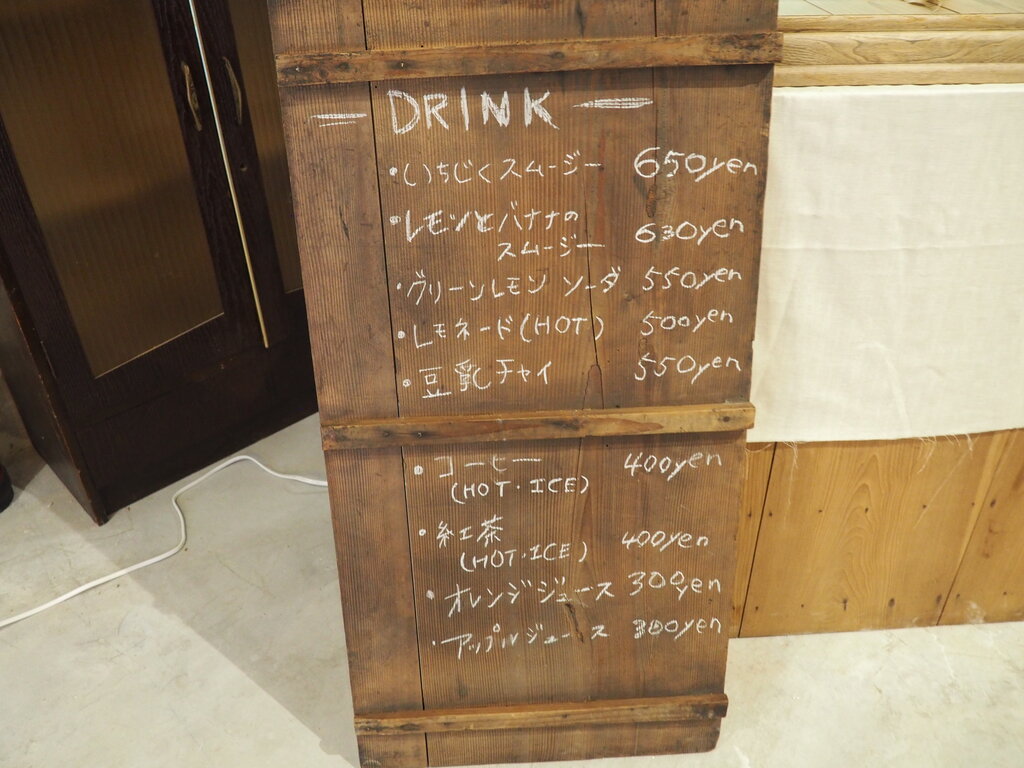 DRINK
・いちじくスムージー 650yen
・レモンとバナナの
スムージー 630yen
・グリーンレモンソーダ 550yen
・レモネード(HOT) 500yen
・豆乳チャイ 550yen
・コーヒー 400yen
(HOT・ICE)
・紅茶 400yen
(HOT・ICE)
・オレンジジュース 300yen
・アップルジュース 300yen